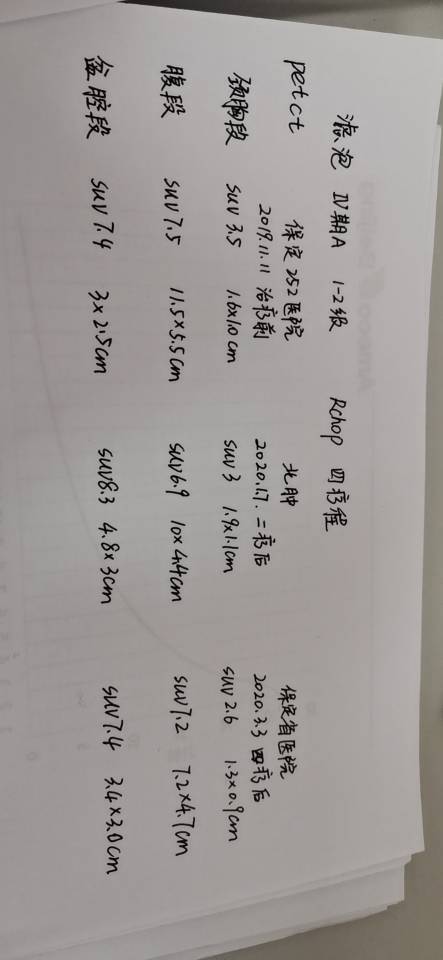 滤泡 Ⅳ期A 1-2级 Rchop 四疗程
petct 保定252医院 北肿 保定省医院
2019.11.11 治疗前 2020.1.7. 二疗后 2020.3.3 四疗后
颈胸段 suv 3.5 1.6×1.0cm suv 3 1.9×1.1cm suv 2.6 1.3×0.9cm
腹段 suv 7.5 11.5×5.5cm suv6.9 10×4.4cm suv7.2 7.2×4.7cm
盆腔段 suv 7.4 3×2.5cm suv8.3 4.8×3cm suv7.4 3.4×3.0cm